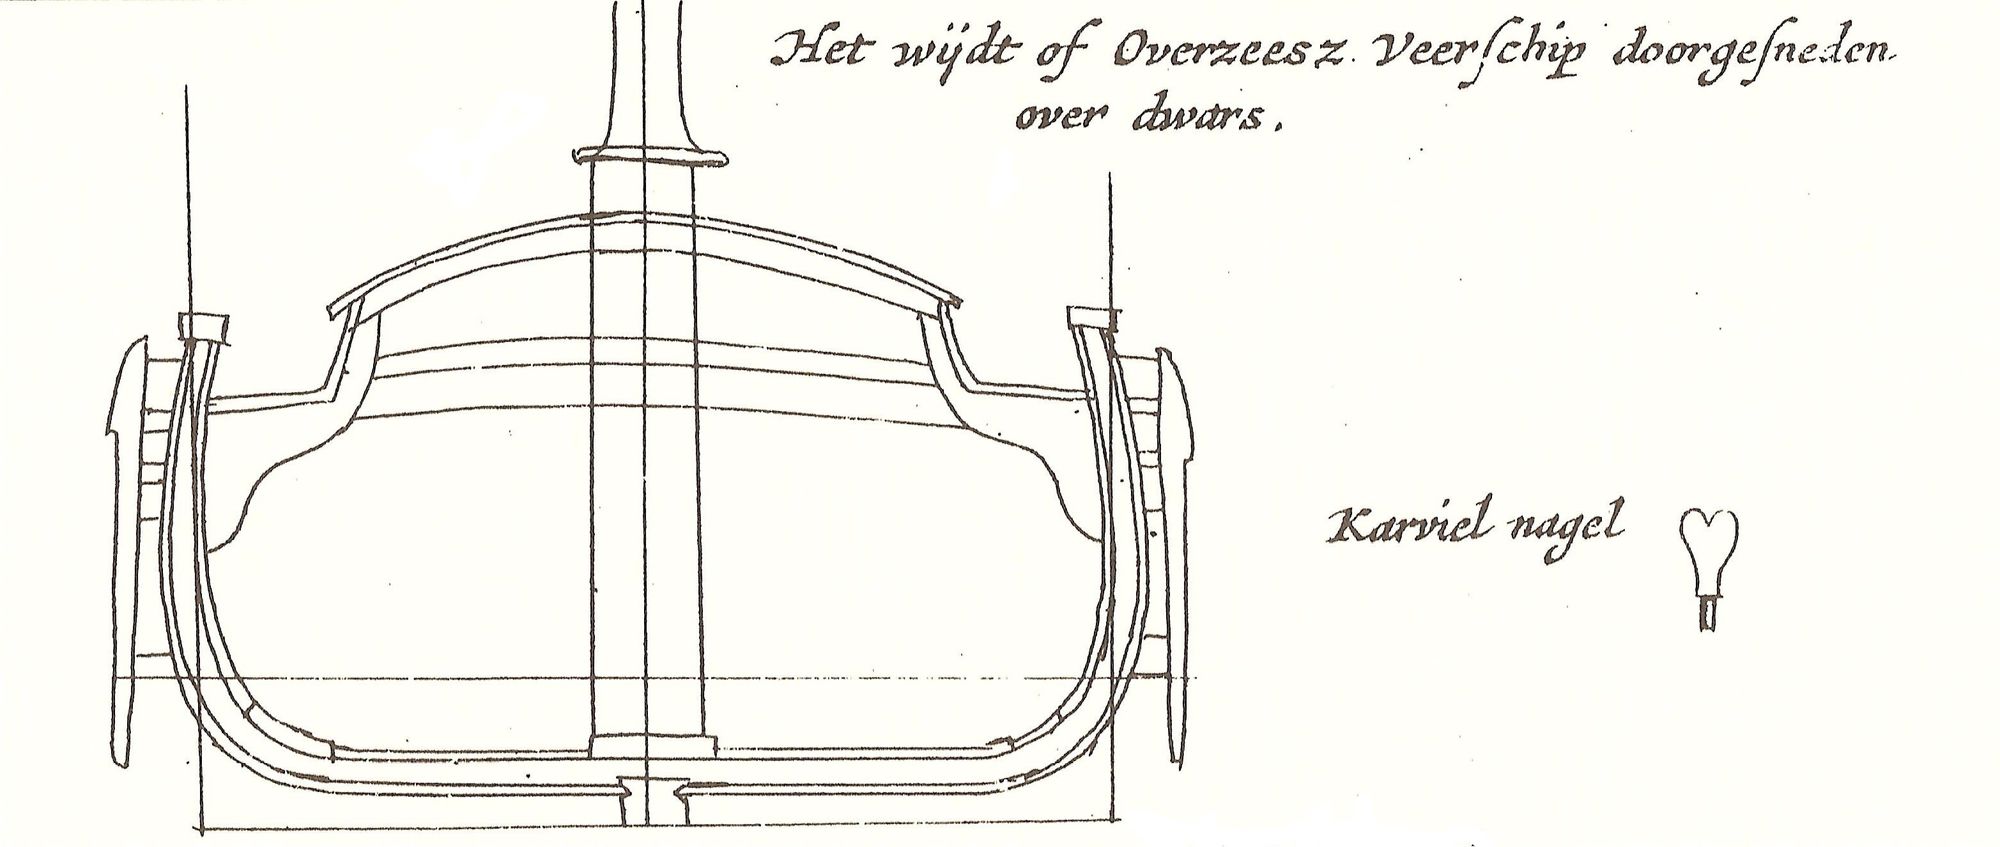 Het wijdt of Overzeesz. Veerſchip doorgeſneden
over dwars.
Karviel nagel